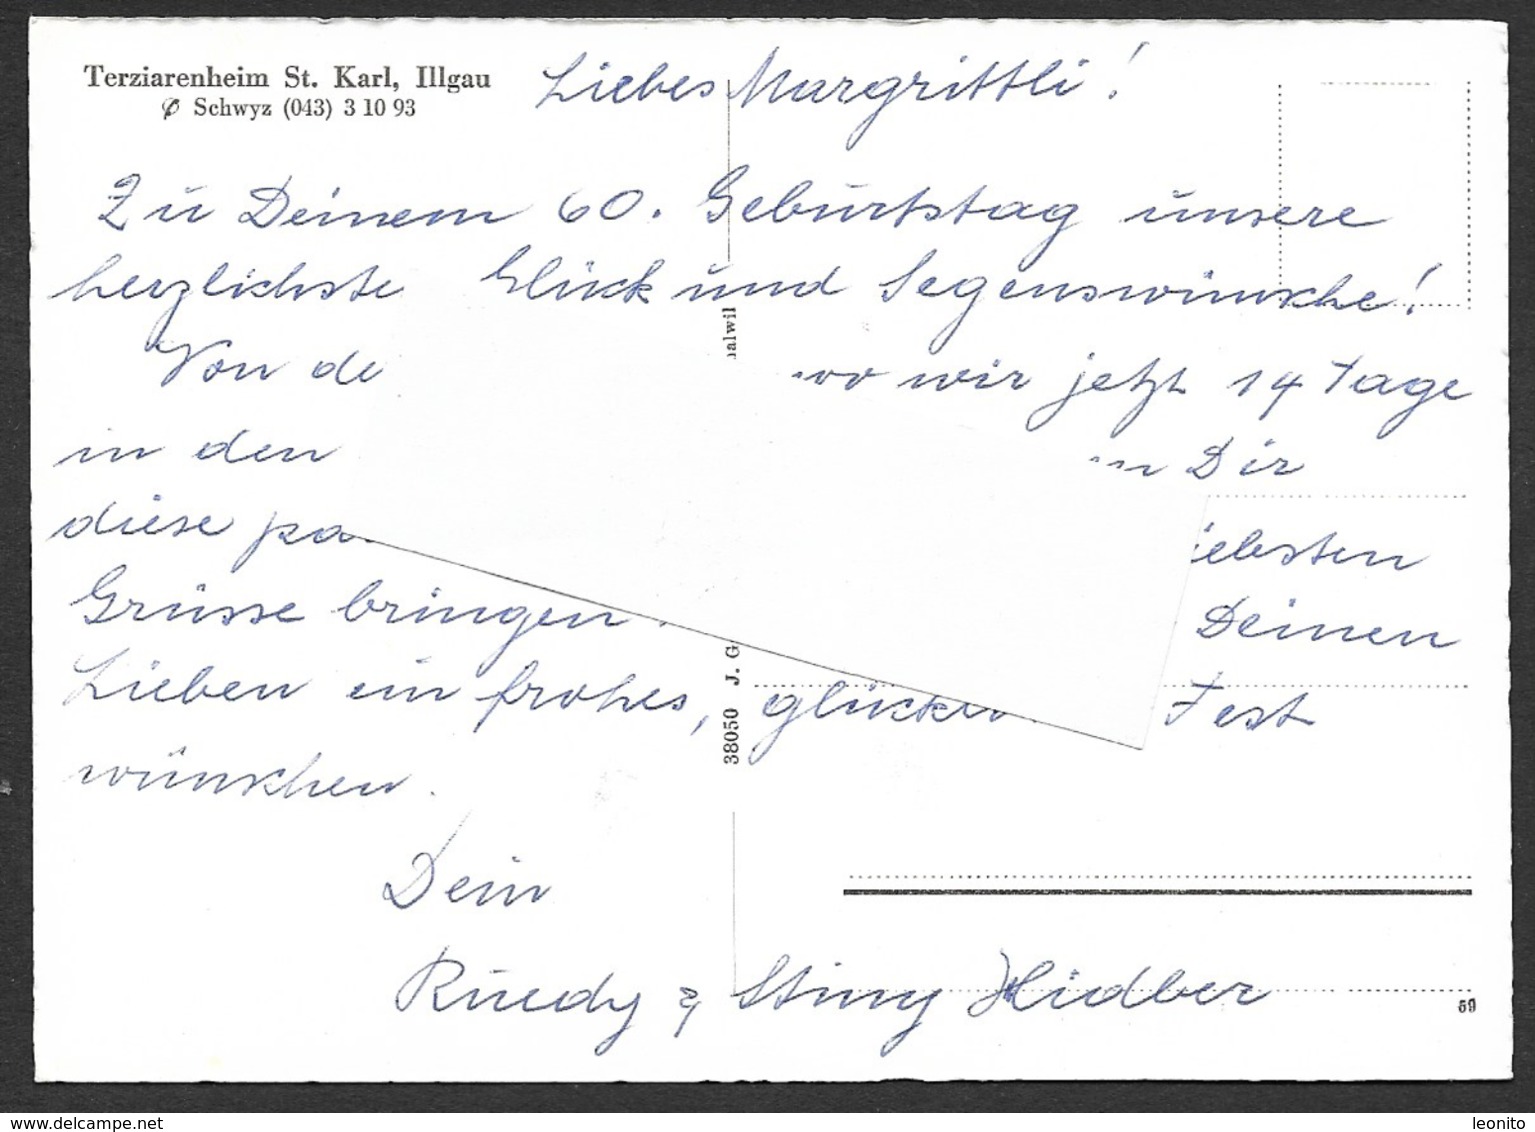 Terziarenheim St. Karl, Illgau
✆ Schwyz (043) 3 10 93
Liebes Margrittli!
Zu Deinem 60. Geburtstag unsere
herzlichste Glück und Segenswünsche!
Von de wo wir jetzt 14 Tage
in den Dir
diese pa iebsten
Grüsse bringen Deinen
Lieben ein frohes, glückli Fest
wünschen.
Dein
Ruedy & Stiny Hidber
38050 J. G
halwil
59
www.delcampe.net
leonito